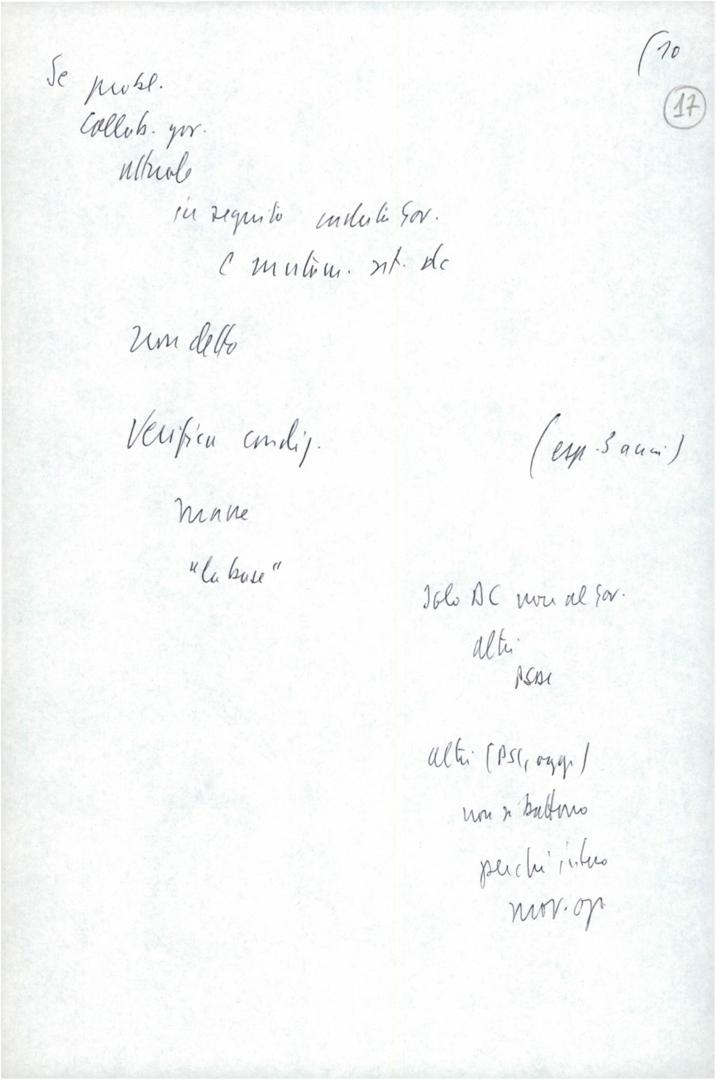 (10
17
Se probl.
Collab. gov.
attuale
in seguito caduta Gov.
e mutam. sit. dc
non detto
Verifica condiz.
(esp. 3 anni)
mane
"la base"
Solo DC non al Gov.
altri
PSDI
altri (PSI, oggi)
non si battono
perchè intero
mov. op